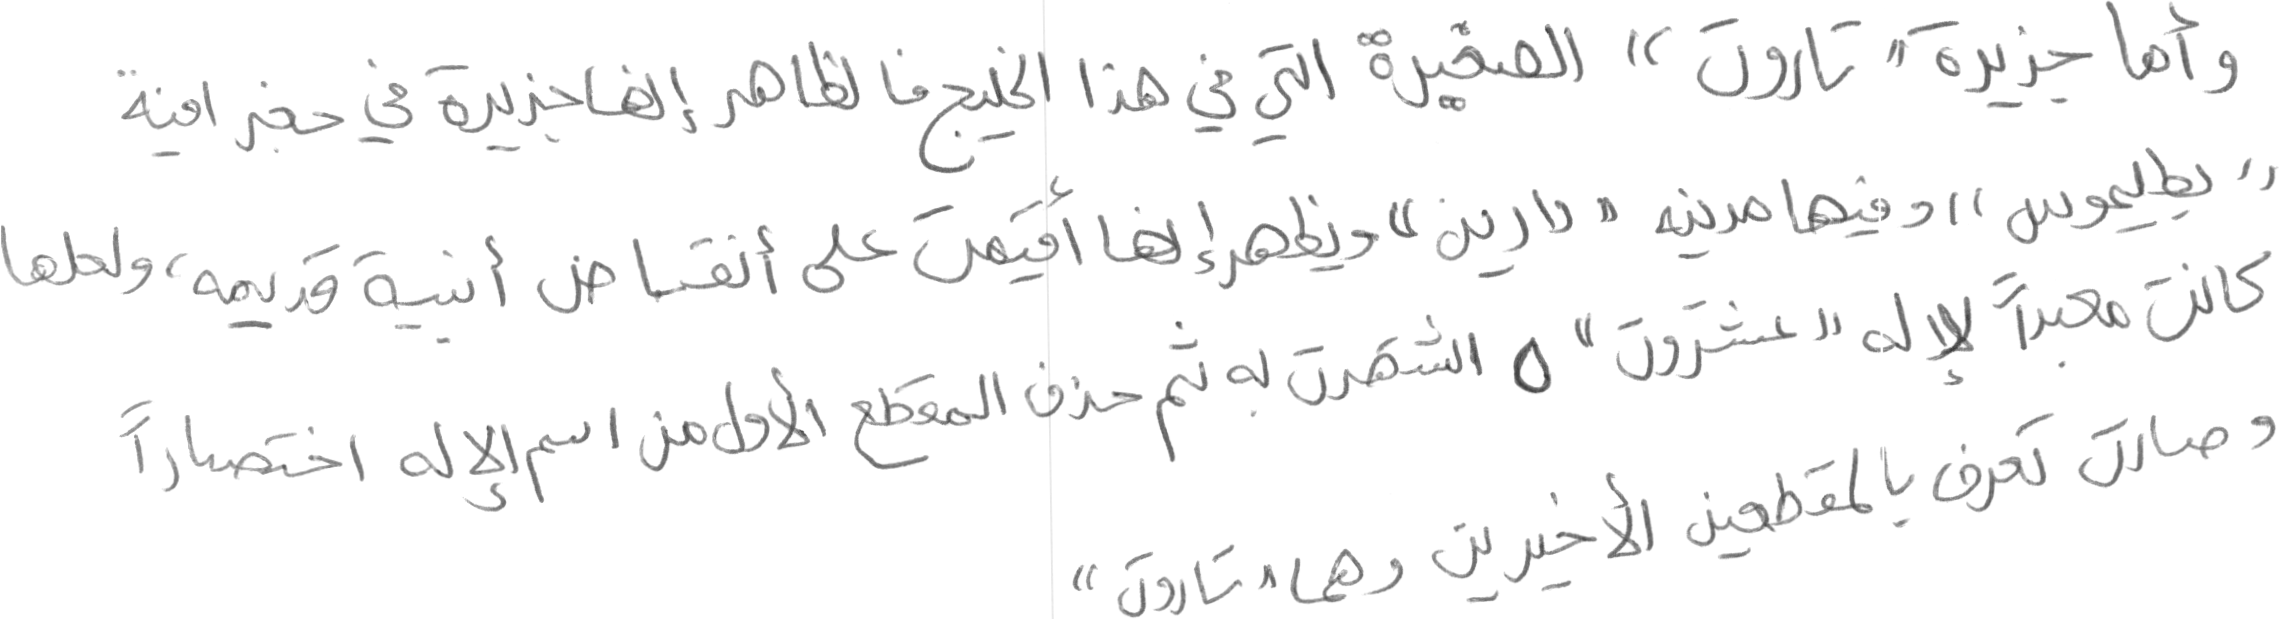 وأما جزيرة "تاروت" الصغيرة التي في هذا الخليج فالظاهر إنها جزيرة في جغرافية
"بطليموس" وفيها مدينه "دارين" ويظهر إنها أقيمت على أنقاض أبنية قديمه، ولعلها
كانت معبداً لإله "عشتروت" اشتهرت به ثم حذف المقطع الأول من اسم الإله اختصاراً
وصارت تعرف بالمقطعين الأخيرين وهما "تاروت"